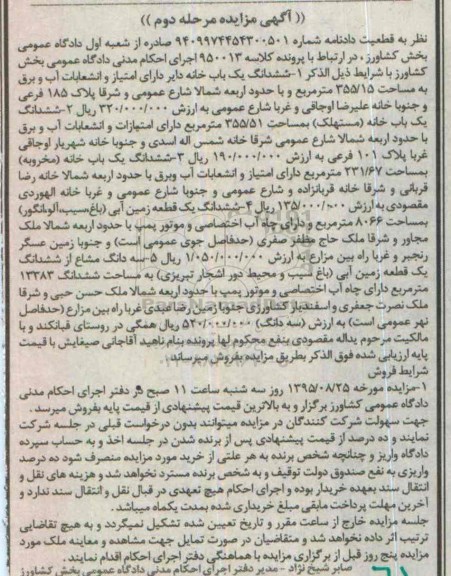 (( آگهی مزایده مرحله دوم ))
نظر به قطعیت دادنامه شماره ۹۴۰۹۹۷۴۴۵۴۳۰۰۵۰۱ صادره از شعبه اول دادگاه عمومی
بخش کشاورز ، در ارتباط با پرونده کلاسه ۹۵۰۰۱۳ اجرای احکام مدنی دادگاه عمومی بخش
کشاورز با شرایط ذیل الذکر ۱-ششدانگ یک باب خانه دایر دارای امتیاز و انشعابات آب و برق
به مساحت ۳۵۵/۱۵ مترمربع و با حدود اربعه شمالا شارع عمومی و شرقا پلاک ۱۸۵ فرعی
و جنوبا خانه علیرضا اوجاقی و غربا شارع عمومی به ارزش ۳۲۰/۰۰۰/۰۰۰ ریال ۲-ششدانگ
یک باب خانه (مستهلک) بمساحت ۳۵۵/۵۱ مترمربع دارای امتیازات و انشعابات آب و برق
با حدود اربعه شمالا شارع عمومی شرقا خانه شمس اله اسدی و جنوبا خانه شهریار اوجاقی
غربا پلاک ۱۰۱ فرعی به ارزش ۱۹۰/۰۰۰/۰۰۰ ریال ۳-ششدانگ یک باب خانه (مخروبه)
بمساحت ۲۳۱/۶۷ مترمربع دارای امتیاز و انشعابات آب وبرق با حدود اربعه شمالا خانه رضا
قربانی و شرقا خانه قربانزاده و شارع عمومی و جنوبا شارع عمومی و غربا خانه الهوردی
مقصودی به ارزش ۱۳۵/۰۰۰/۰۰۰ ریال ۴-ششدانگ یک قطعه زمین آبی (باغ،سیب،آلو،انگور)
بمساحت ۸۰۶۶ مترمربع و دارای چاه آب اختصاصی و موتور پمپ با حدود اربعه شمالا ملک
مجاور و شرقا ملک حاج مظفر صفری (حدفاصل جوی عمومی است) و جنوبا زمین عسگر
رنجبر و غربا راه بین مزارع به ارزش ۱/۰۵۰/۰۰۰/۰۰۰ ریال ۵-سه دانگ مشاع از ششدانگ
یک قطعه زمین آبی (باغ سیب و محیط دور اشجار تبریزی) به مساحت ششدانگ ۱۳۳۸۳
مترمربع دارای چاه آب اختصاصی و موتور پمپ با حدود اربعه شمالا ملک حسن حبی و شرقا
ملک نصرت جعفری و اسفندیار کشاورزی جنوبا زمین رضا عبدی غربا راه بین مزارع (حدفاصل
نهر عمومی است) به ارزش (سه دانگ) ۵۴۰/۰۰۰/۰۰۰ ریال همگی در روستای قبانکند و با
مالکیت مرحوم یداله مقصودی بنفع محکوم لها پرونده بنام ناهید آقاجانی صیغایش با قیمت
پایه ارزیابی شده فوق الذکر بطریق مزایده بفروش میرساند.
شرایط فروش
۱-مزایده مورخه ۱۳۹۵/۰۸/۲۵ روز سه شنبه ساعت ۱۱ صبح در دفتر اجرای احکام مدنی
دادگاه عمومی کشاورز برگزار و به بالاترین قیمت پیشنهادی از قیمت پایه بفروش میرسد .
جهت سهولت شرکت کنندگان در مزایده میتوانند بدون درخواست قبلی در جلسه شرکت
نمایند و ده درصد از قیمت پیشنهادی پس از برنده شدن در جلسه اخذ و به حساب سپرده
دادگاه واریز و چنانچه شخص برنده به هر علتی از خرید مورد مزایده منصرف شود ده درصد
واریزی به نفع صندوق دولت توقیف و به شخص برنده مسترد نخواهد شد و هزینه های نقل و
انتقال سند بعهده خریدار بوده و اجرای احکام هیچ تعهدی در قبال نقل و انتقال سند ندارد و
آخرین مهلت پرداخت مابقی مبلغ خریداری شده بمدت یکماه میباشد .
جلسه مزایده خارج از ساعت مقرر و تاریخ تعیین شده تشکیل نمیگردد و به هیچ تقاضایی
ترتیب اثر داده نخواهد شد و متقاضیان در صورت تمایل جهت مشاهده و معاینه ملک مورد
مزایده پنج روز قبل از برگزاری مزایده با هماهنگی دفتر اجرای احکام اقدام نمایند .
صابر شیخ نژاد - مدیر دفتر اجرای احکام مدنی دادگاه عمومی بخش کشاورز